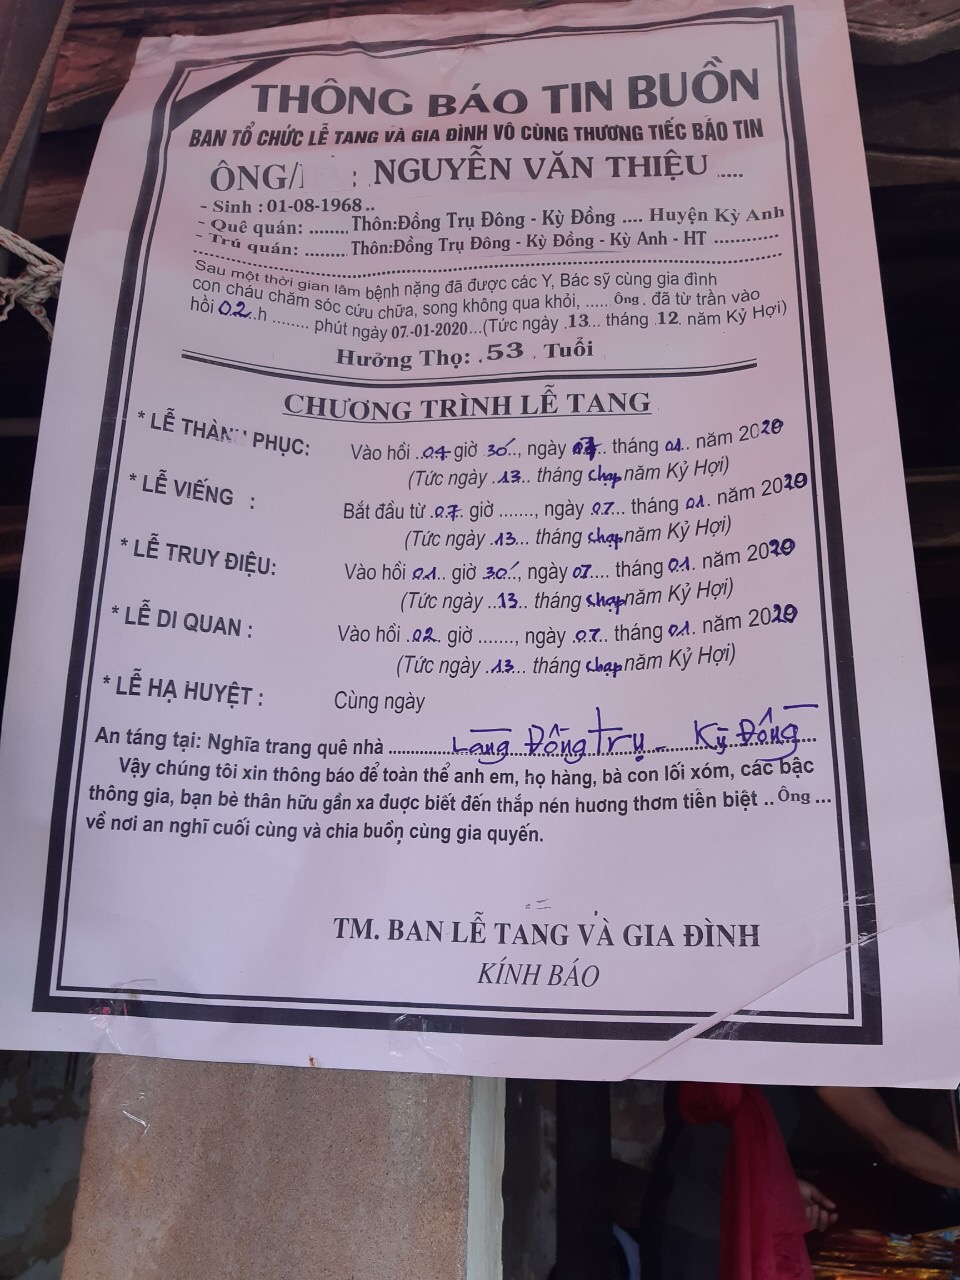 THÔNG BÁO TIN BUỒN
BAN TỔ CHỨC LỄ TANG VÀ GIA ĐÌNH VÔ CÙNG THƯƠNG TIẾC BÁO TIN
ÔNG/ : NGUYỄN VĂN THIỆU .....
- Sinh : 01-08-1968..
- Quê quán: ........ Thôn:Đồng Trụ Đông - Kỳ Đồng .... Huyện Kỳ Anh
- Trú quán: ........ Thôn:Đồng Trụ Đông - Kỳ Đồng - Kỳ Anh - HT ..............
Sau một thời gian lâm bệnh nặng đã được các Y, Bác sỹ cùng gia đình
con cháu chăm sóc cứu chữa, song không qua khỏi, ...... Ông . đã từ trần vào
hồi 02..h ........ phút ngày 07-01-2020...(Tức ngày .13... tháng .12. năm Kỷ Hợi)
Hưởng Thọ: .53 . Tuổi
CHƯƠNG TRÌNH LỄ TANG
* LỄ THÀNH PHỤC: Vào hồi ..04 giờ 30´.., ngày 07.. tháng 01. năm 2020
(Tức ngày .13... tháng chạp năm Kỷ Hợi)
* LỄ VIẾNG : Bắt đầu từ .07. giờ ......., ngày 07... tháng 01. năm 2020
(Tức ngày .13... tháng chạp năm Kỷ Hợi)
* LỄ TRUY ĐIỆU: Vào hồi 01.. giờ 30´., ngày 07.... tháng 01. năm 2020
(Tức ngày ..13... tháng chạp năm Kỷ Hợi)
* LỄ DI QUAN : Vào hồi .02. giờ ......., ngày .07.. tháng 01. năm 2020
(Tức ngày .13... tháng chạp năm Kỷ Hợi)
* LỄ HẠ HUYỆT : Cùng ngày
An táng tại: Nghĩa trang quê nhà ........... Làng Đồng Trụ - Kỳ Đồng ...
Vậy chúng tôi xin thông báo để toàn thể anh em, họ hàng, bà con lối xóm, các bậc
thông gia, bạn bè thân hữu gần xa được biết đến thắp nén hương thơm tiễn biệt .. Ông ...
về nơi an nghĩ cuối cùng và chia buồn cùng gia quyến.
TM. BAN LỄ TANG VÀ GIA ĐÌNH
KÍNH BÁO